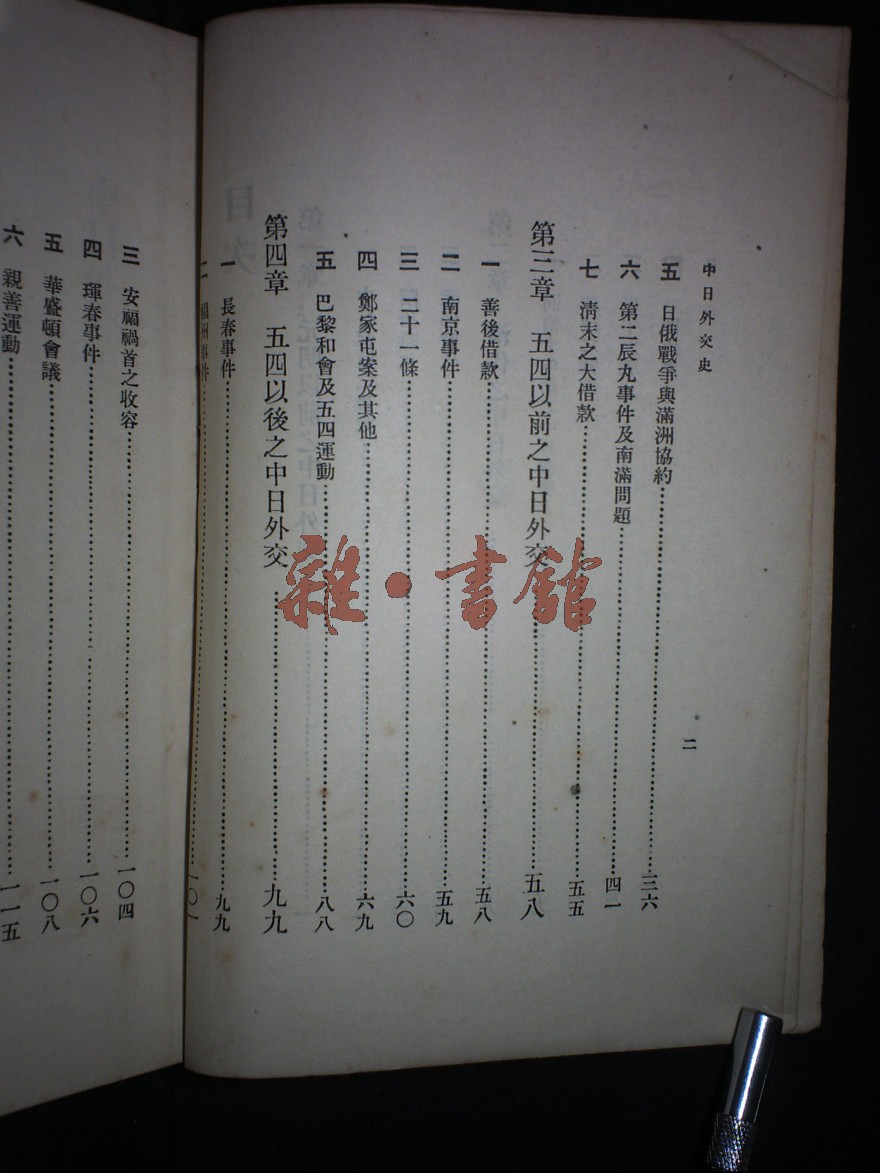 中日外交史
二
五 日俄戰爭與滿洲協約 三六
六 第二辰丸事件及南滿問題 四一
七 清末之大借款 五五
第三章 五四以前之中日外交 五八
一 善後借款 五八
二 南京事件 五九
三 二十一條 六〇
四 鄭家屯案及其他 六九
五 巴黎和會及五四運動 八八
第四章 五四以後之中日外交 九九
一 長春事件 九九
二 福州事件 一〇一
三 安福禍首之收容 一〇四
四 琿春事件 一〇六
五 華盛頓會議 一〇八
六 親善運動 一一五
雜·書館